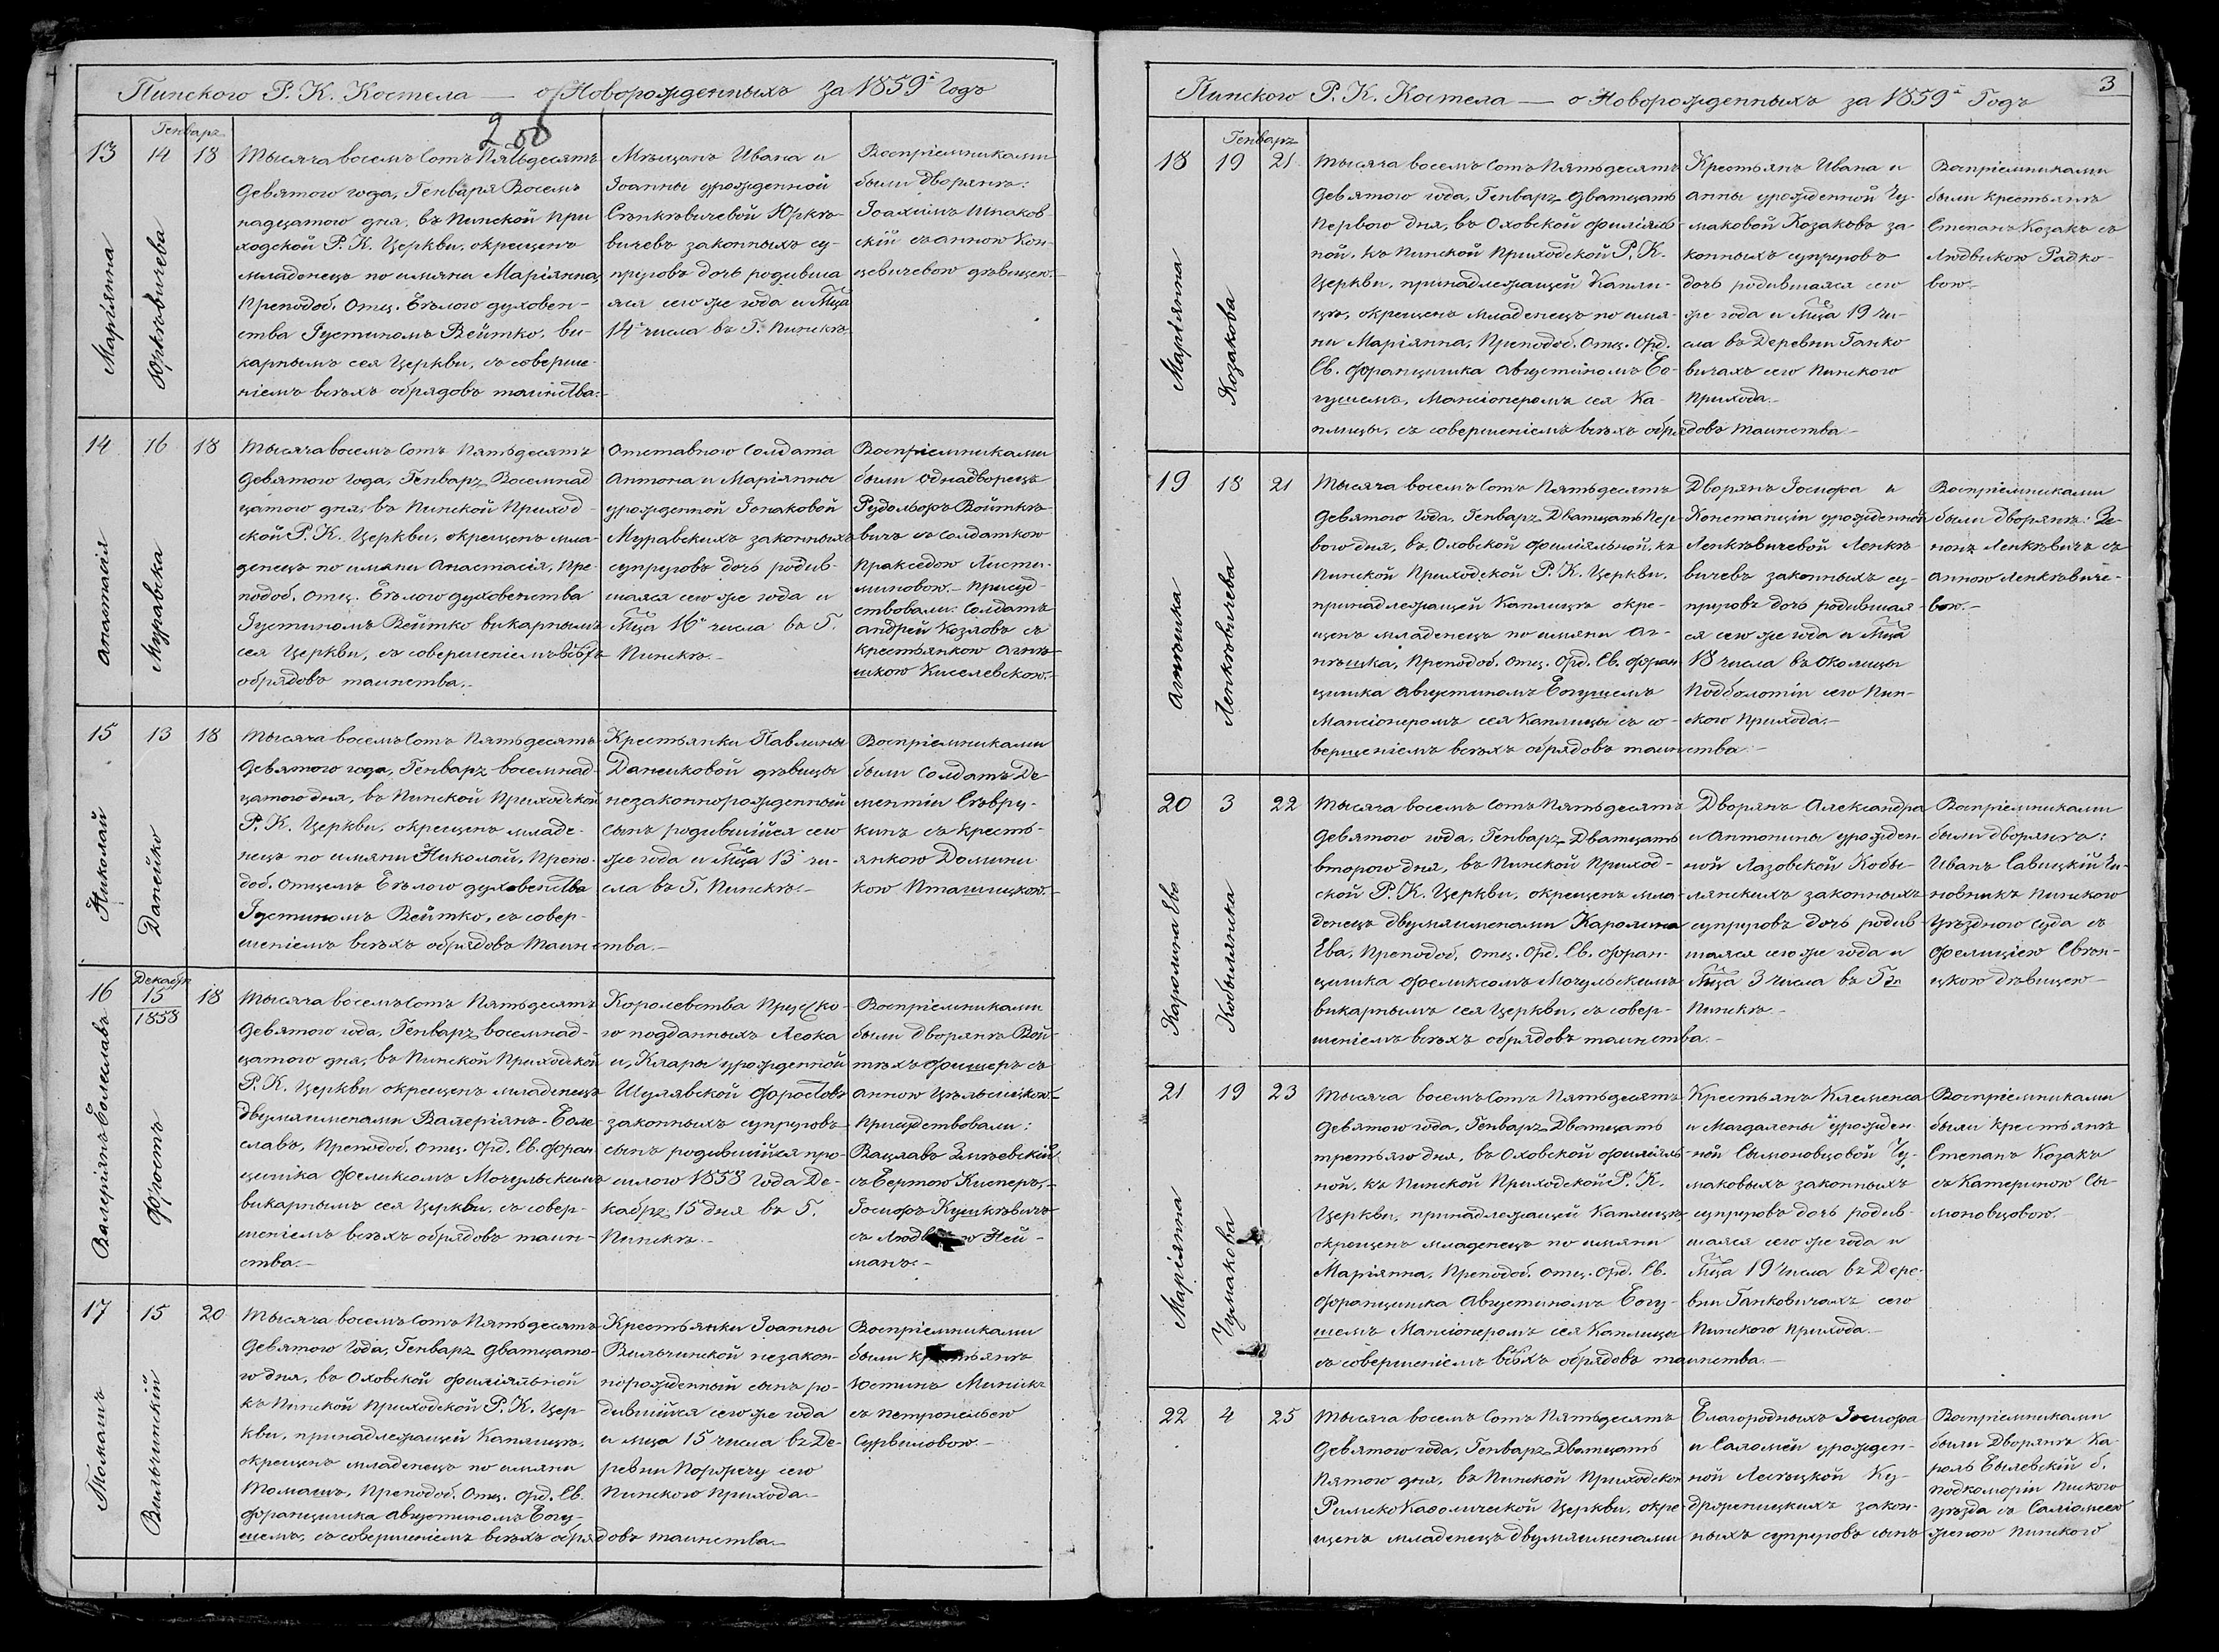 Пинского Р. К. Костела — о Новорожденныхъ за 1859й Годъ
208
Генварь
13 14 18
Маріянна
Юркѣвичева
Тысяча восемъ Сотъ Пятьдесятъ
девятого года, Генваря Восемъ
надцатого дня, въ Пинской При
ходской Р. К. Церкви, окрещенъ
младенецъ по имяни Маріянна,
Преподоб. Отц. Бѣлого духовен-
ства Густиномъ Вейтко, ви-
карнымъ сея Церкви, съ соверше-
ніемъ всѣхъ обрядовъ таинства.
Мѣщанъ Ивана и
Іоанны урожденной
Сѣнкѣвичевой Юркѣ-
вичевъ законныхъ су-
пруговъ дочь родивша
яся сего же года и Мца
14 числа въ Г. Пинскѣ
Воспріемниками
были дворянъ:
Іоахимъ Шпаков-
скій съ Анною Кон-
цевичевою дѣвицею.
14 16 18
Анастасія
Муравска
Тысяча восемъ Сотъ Пятьдесятъ
девятого года, Генваръ Восемнад
цатого дня, въ Пинской Приход-
ской Р. К. Церкви, окрещенъ мла-
денецъ по имяни Анастасія, Пре-
подоб. Отц. Бѣлого духовенства
Густиномъ Вейтко викарнымъ
сея Церкви, съ совершеніемъ всѣхъ
обрядовъ таинства.
Отставного Солдата
Антона и Маріянны
урожденной Гопаковой
Муравскихъ законныхъ
супруговъ дочь родив-
шаяся сего же года и
Мца 16 числа въ Г.
Пинскѣ.
Воспріемниками
были Однадворецъ
Рудольфъ Войткѣ-
вичъ съ Солдаткою
Пракседою Хисти-
миновою. Присуд-
ствовали: Солдатъ
Андрей Козловъ съ
крестьянкою Агнѣ-
шкою Киселевскою.
15 13 18
Николай
Данейко
Тысяча восемъ Сотъ Пятьдесятъ
девятого года, Генваръ восемнад-
цатого дня, въ Пинской Приходской
Р. К. Церкви, окрещенъ младе-
нецъ по имяни Николай, Препо-
доб. Отцемъ Бѣлого духовенства
Густиномъ Вейтко, съ совер-
шеніемъ всѣхъ обрядовъ таинства.
Крестьянки Павлины
Данейковой дѣвицы
незаконнорожденный
сынъ родившійся сего
же года и Мца 13 чи-
сла въ Г. Пинскѣ.
Воспріемниками
были Солдатъ Де-
ментій Сѣвру-
кинъ съ кресть-
янкою Домини-
кою Пташицкою.
16 Декабр. 15 1858 18
Валеріянъ Болеславъ
Фростъ
Тысяча восемъ Сотъ Пятьдесятъ
девятого года, Генваръ восемнад-
цатого дня, въ Пинской Приходской
Р. К. Церкви окрещенъ младенецъ
двумя именами Валеріянъ-Боле-
славъ, Преподоб. Отц. Орд. Св. Фран
цишка Феликсомъ Мочульскимъ
викарнымъ сея Церкви, съ совер-
шеніемъ всѣхъ обрядовъ таин-
ства.
Королевства Пруско-
го подданныхъ Леока
и Клары урожденной
Шулявской Фростовъ
законныхъ супруговъ
сынъ родившійся про-
шлого 1858 года Де-
кабръ 15 дня въ Г.
Пинскѣ.
Воспріемниками
были дворянъ Вой-
тѣхъ Фишеръ съ
Анною Цѣльсицкою.
Присудствовали:
Вацлавъ Змѣевскій
съ Бертою Киснеръ,
Іосифъ Кушкѣвичъ
съ Ней-
манъ.
17 15 20
Томашъ
Вильчинскій
Тысяча восемъ Сотъ Пятьдесятъ
девятого года, Генваръ двацато-
го дня, въ Оховской филіяльной
къ Пинской Приходской Р. К. Цер-
кви, принадлежащей Каплицѣ,
окрещенъ младенецъ по имяни
Томашъ, Преподоб. Отц. Орд. Св.
Францишка Августиномъ Богу-
шемъ, съ совершеніемъ всѣхъ обрядовъ таинства.
Крестьянки Іоанны
Вильчинской незакон-
норожденный сынъ ро-
дившійся сего же года
и мца 15 числа въ Де-
ревни Поржечу сего
Пинского Прихода.
Воспріемниками
были крестьянъ
Юстинъ Миничъ
съ Петронелею
Сурвиловою.
Пинского Р. К. Костела — о Новорожденныхъ за 1859й Годъ
3
Генварь
18 19 21
Маріянна
Козакова
Тысяча восемъ Сотъ Пятьдесятъ
девятого года, Генваръ двацать
Первого дня, въ Оховской филіяль
ной, къ Пинской Приходской Р. К.
Церкви, принадлежащей Капли-
цѣ, окрещенъ младенецъ по имя-
ни Маріянна, Преподоб. Отц. Орд.
Св. Францишка Августиномъ Бо-
гушемъ, Мансіонеромъ сея Ка-
плицы, съ совершеніемъ всѣхъ обрядовъ таинства.
Крестьянъ Ивана и
Анны урожденной Чу-
маковой Козаковъ за-
конныхъ супруговъ
дочь родившаяся сего
же года и Мца 19 чи-
сла въ Деревни Ганко
вичахъ сего Пинского
Прихода.
Воспріемниками
были крестьянъ
Степанъ Козакъ съ
Людвикою Радко-
вою.
19 18 21
Агнѣшка
Ленкѣвичева
Тысяча восемъ Сотъ Пятьдесятъ
девятого Года, Генваръ Двацать Пер-
вого дня, въ Оховской филіяльной, къ
Пинской Приходской Р. К. Церкви,
принадлежащей Каплицѣ окре-
щенъ младенецъ по имяни Аг-
нѣшка, Преподоб. Отц. Орд. Св. Фран
цишка Августиномъ Богушемъ
Мансіонеромъ сея Каплицы съ со-
вершеніемъ всѣхъ обрядовъ таинства.
Дворянъ Іосифа и
Констанціи урожденной
Ленкѣвичевой Ленкѣ
вичевъ законныхъ су-
пруговъ дочь родившая-
ся сего же года и Мца
18 числа въ Околицы
Подболотіи сего Пин-
ского Прихода.
Воспріемниками
были дворянъ: Зе-
нонъ Ленкѣвичъ съ
Анною Ленкѣвиче-
вою.
20 3 22
Каролина Ева
Кобылянска
Тысяча восемъ Сотъ Пятьдесятъ
девятого года, Генваръ Двацать
второго дня, въ Пинской Приход-
ской Р. К. Церкви, окрещенъ мла-
денецъ двумя именами Каролина
Ева, Преподоб. Отц. Орд. Св. Фран-
цишка Феликсомъ Мочульскимъ
викарнымъ сея Церкви, съ совер-
шеніемъ всѣхъ обрядовъ таинства.
Дворянъ Александра
и Антонины урожден-
ной Лазовской Кобы-
лянскихъ законныхъ
супруговъ дочь родив-
шаяся сего же года и
Мца 3 числа въ Гдѣ
Пинскѣ.
Воспріемниками
были дворянъ:
Иванъ Савицкій Чи-
новникъ Пинского
Уѣздного Суда съ
Фелиціею Свѣн-
цкою дѣвицею
21 19 23
Маріянна
Чумакова
Тысяча восемъ Сотъ Пятьдесятъ
девятого года, Генваръ Двацать
третьяго дня, въ Оховской филіяль-
ной, къ Пинской Приходской Р. К.
Церкви, принадлежащей Каплицѣ,
окрещенъ младенецъ по имяни
Маріянна, Преподоб. Отц. Орд. Св.
Францишка Августиномъ Богу-
шемъ Мансіонеромъ сея Каплицы
съ совершеніемъ всѣхъ обрядовъ таинства.
Крестьянъ Клеменса
и Магдалены урожден-
ной Сымоновцовой Чу-
маковыхъ законныхъ
супруговъ дочь родив-
шаяся сего же года и
Мца 19 Числа въ Дере-
вни Ганковичахъ сего
Пинского Прихода.
Воспріемниками
были крестьянъ
Степанъ Козакъ
съ Катериною Сы-
моновцовою.
22 4 25
Тысяча восемъ Сотъ Пятьдесятъ
девятого года, Генваръ Двацать
Пятого дня, въ Пинской Приходской
Римско Каѳолической Церкви, окре-
щенъ младенецъ двумя именами
Благородныхъ Іосифа
и Саломеи урожден-
ной Лесѣцкой Ку-
држеницкихъ закон-
ныхъ супруговъ сынъ
Воспріемниками
были Дворянъ Ка-
роль Былевскій б.
Подкоморіи Пинского
уѣзда съ Саломеею
женою Пинского